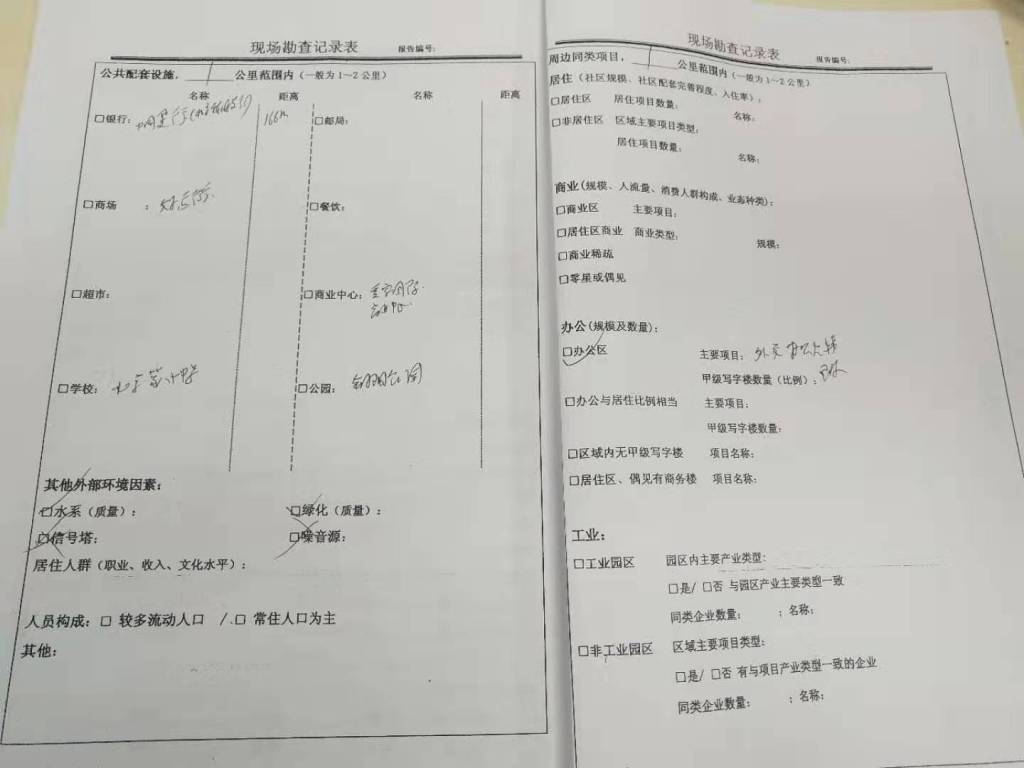 现场勘查记录表 报告编号:
公共配套设施, 1 公里范围内(一般为1~2公里)
名称 距离 名称 距离
□银行: 中国银行 166m □邮局:
□商场 : □餐饮:
□超市: □商业中心:
□学校: 北京第八十中学 □公园: 朝阳公园
其他外部环境因素:
□水系(质量): □绿化(质量):
□信号塔: □噪音源:
居住人群(职业、收入、文化水平):
人员构成: □ 较多流动人口 /.□ 常住人口为主
其他:
现场勘查记录表 报告编号:
周边同类项目, 1 公里范围内(一般为1~2公里)
居住(社区规模、社区配套完善程度、入住率):
□居住区 居住项目数量: 名称:
□非居住区 区域主要项目类型:
居住项目数量: 名称:
商业(规模、人流量、消费人群构成、业态种类):
□商业区 主要项目:
□居住区商业 商业类型: 规模:
□商业稀疏
□零星或偶见
办公(规模及数量):
□办公区 主要项目: 外交办公大楼
甲级写字楼数量(比例):
□办公与居住比例相当 主要项目:
甲级写字楼数量:
□区域内无甲级写字楼 项目名称:
□居住区、偶见有商务楼 项目名称:
工业:
□工业园区 园区内主要产业类型:
□是/ □否 与园区产业主要类型一致
同类企业数量: ;名称:
□非工业园区 区域主要项目类型:
□是/ □否 有与项目产业类型一致的企业
同类企业数量: ;名称: